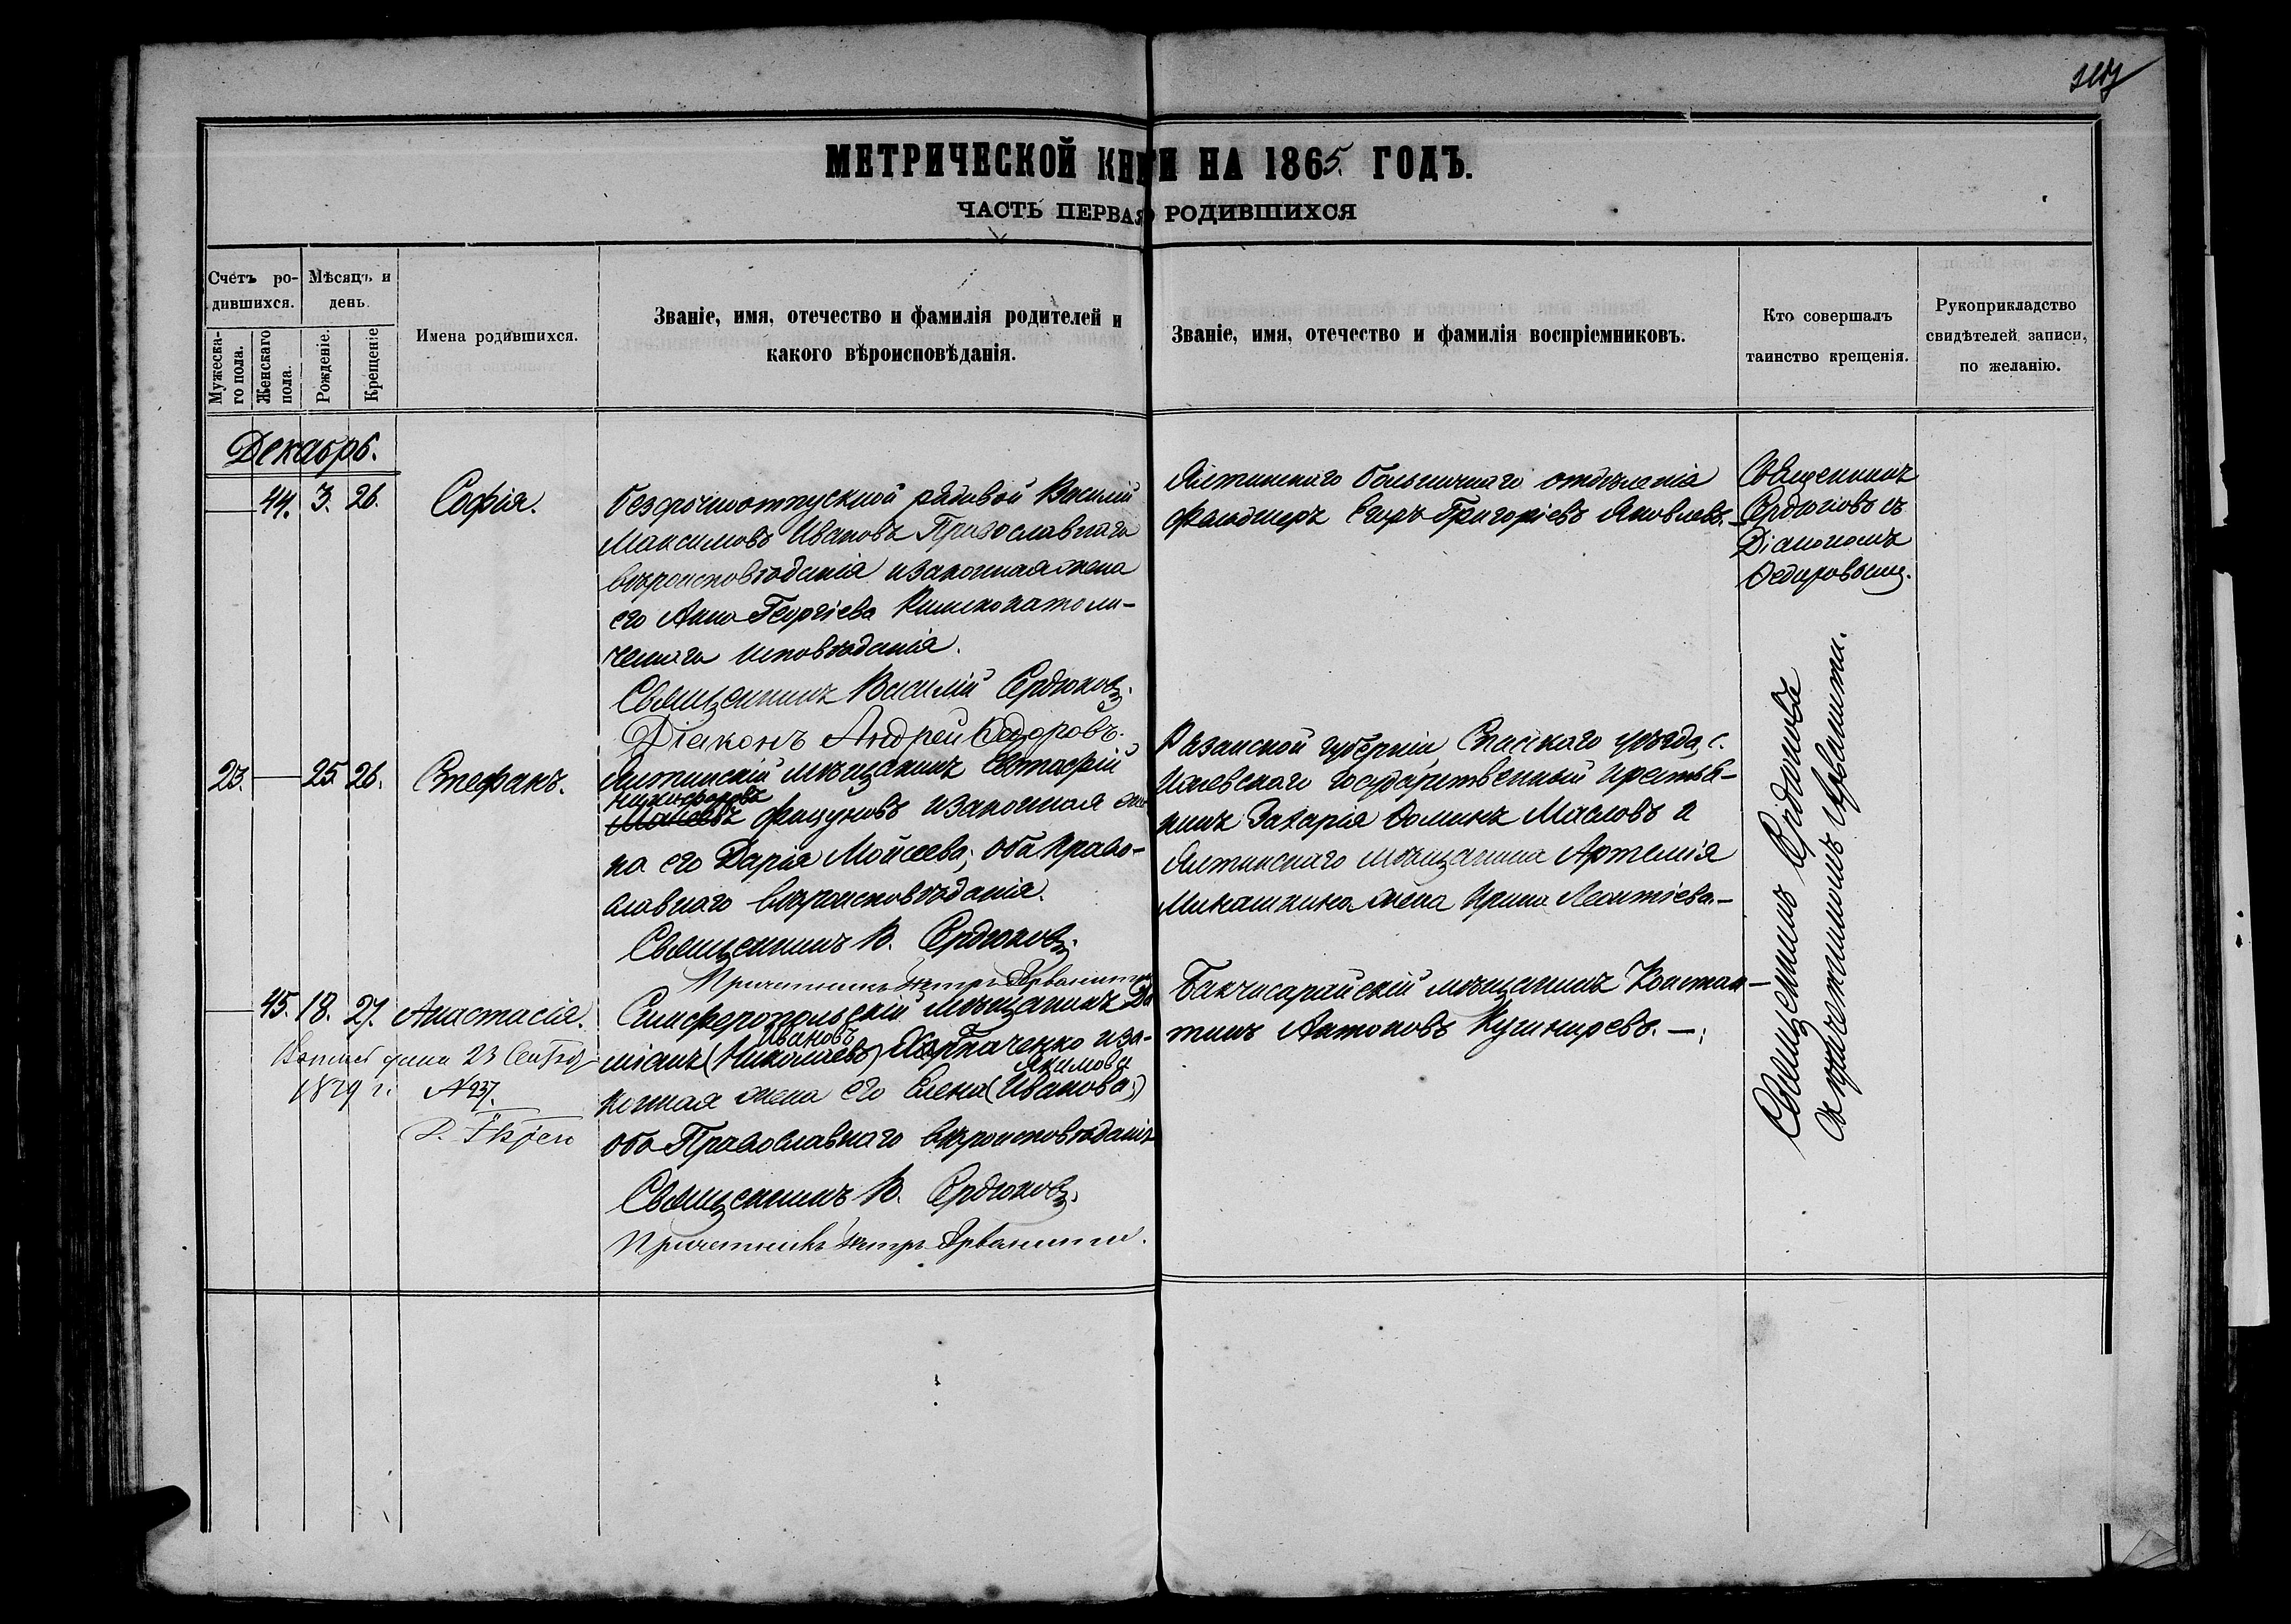 МЕТРИЧЕСКОЙ КНИГИ НА 1865. ГОДЪ.
ЧАСТЬ ПЕРВАЯ О РОДИВШИХСЯ
Счетъ ро-
дившихся.
Мужеска-
го пола.
Женскаго
пола.
Мѣсяцъ и
день.
Рожденіе.
Крещеніе
Имена родившихся.
Званіе, имя, отечество и фамилія родителей и
какого вѣроисповѣданія.
Званіе, имя, отечество и фамилія воспріемниковъ.
Кто совершалъ
таинство крещенія.
Рукоприкладство
свидѣтелей записи,
по желанію.
Декабрь.
44. 3. 26. Софія.
безсрочноотпускной рядовой Василій
Максимовъ Ивановъ Православнаго
вѣроисповѣданія и законная жена
его Анна Георгіева Римскокатоли-
ческаго исповѣданія.
Священникъ Василій Сердюковъ.
Діаконъ Андрей Федоровъ.
Ялтинскаго больничнаго отдѣленія
фельдшеръ Егоръ Григоріевъ Яковлевъ.
Священникъ
Сердюковъ съ
Діакономъ
Федоровымъ.
23. — 25 26. Стефанъ.
Ялтинскій мѣщанинъ Евтафій
Никифоровъ
фацуновъ и законная же
на его Дарія Моисеева; оба право-
славнаго вѣроисповѣданія.
Священникъ В. Сердюковъ.
Причетникъ Петръ Арванити
Казанской губерніи, Спасскаго уѣзда, с.
государственный крестья-
нинъ Захарія Фоминъ Масловъ и
Ялтинскаго мѣщанина Артемія
Микашкина жена Ирина Леонтіева.—
45. 18. 27. Анастасія.
23
1879 г. № 237.
Симферопольскій мѣщанинъ Да
Ивановъ
міанъ (Николаевъ) Харпаченко и за-
Акимова
конная жена его Елена (Иванова;)
оба Православнаго вѣроисповѣданія
Священникъ В. Сердюковъ.
Причетникъ Петръ Арванити.
Бакчисарайскій мѣщанинъ Констан—
тинъ Антоновъ Кушниревъ. —;
Священникъ Сердюковъ
съ причетникомъ Арванити.